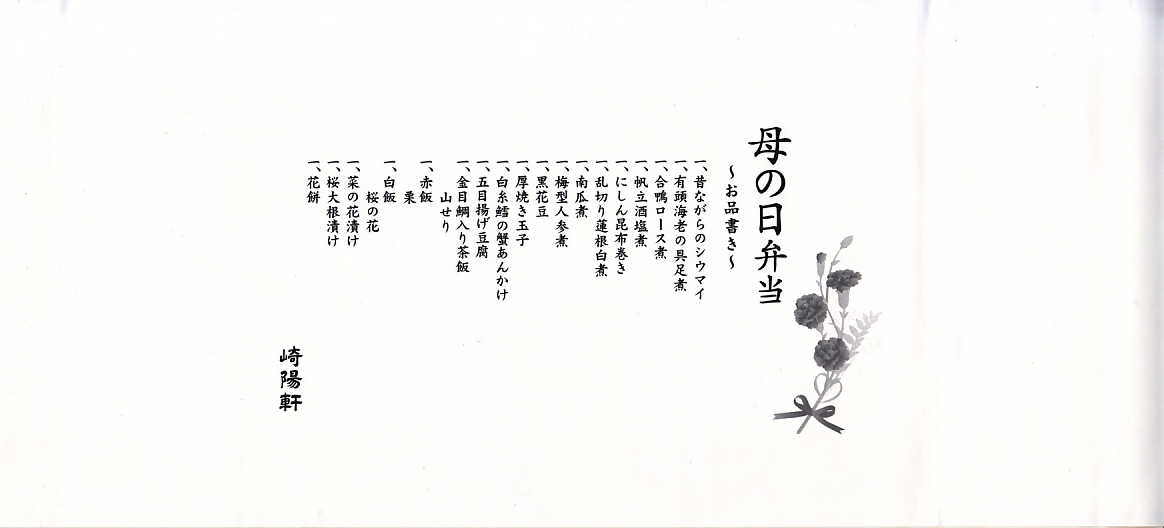 母の日弁当
～お品書き～
一、昔ながらのシウマイ
一、有頭海老の具足煮
一、合鴨ロース煮
一、帆立酒塩煮
一、にしん昆布巻き
一、乱切り蓮根白煮
一、南瓜煮
一、梅型人参煮
一、黒花豆
一、厚焼き玉子
一、白糸鱈の蟹あんかけ
一、五目揚げ豆腐
一、金目鯛入り茶飯
山せり
一、赤飯
栗
一、白飯
桜の花
一、菜の花漬け
一、桜大根漬け
一、花餅
崎陽軒